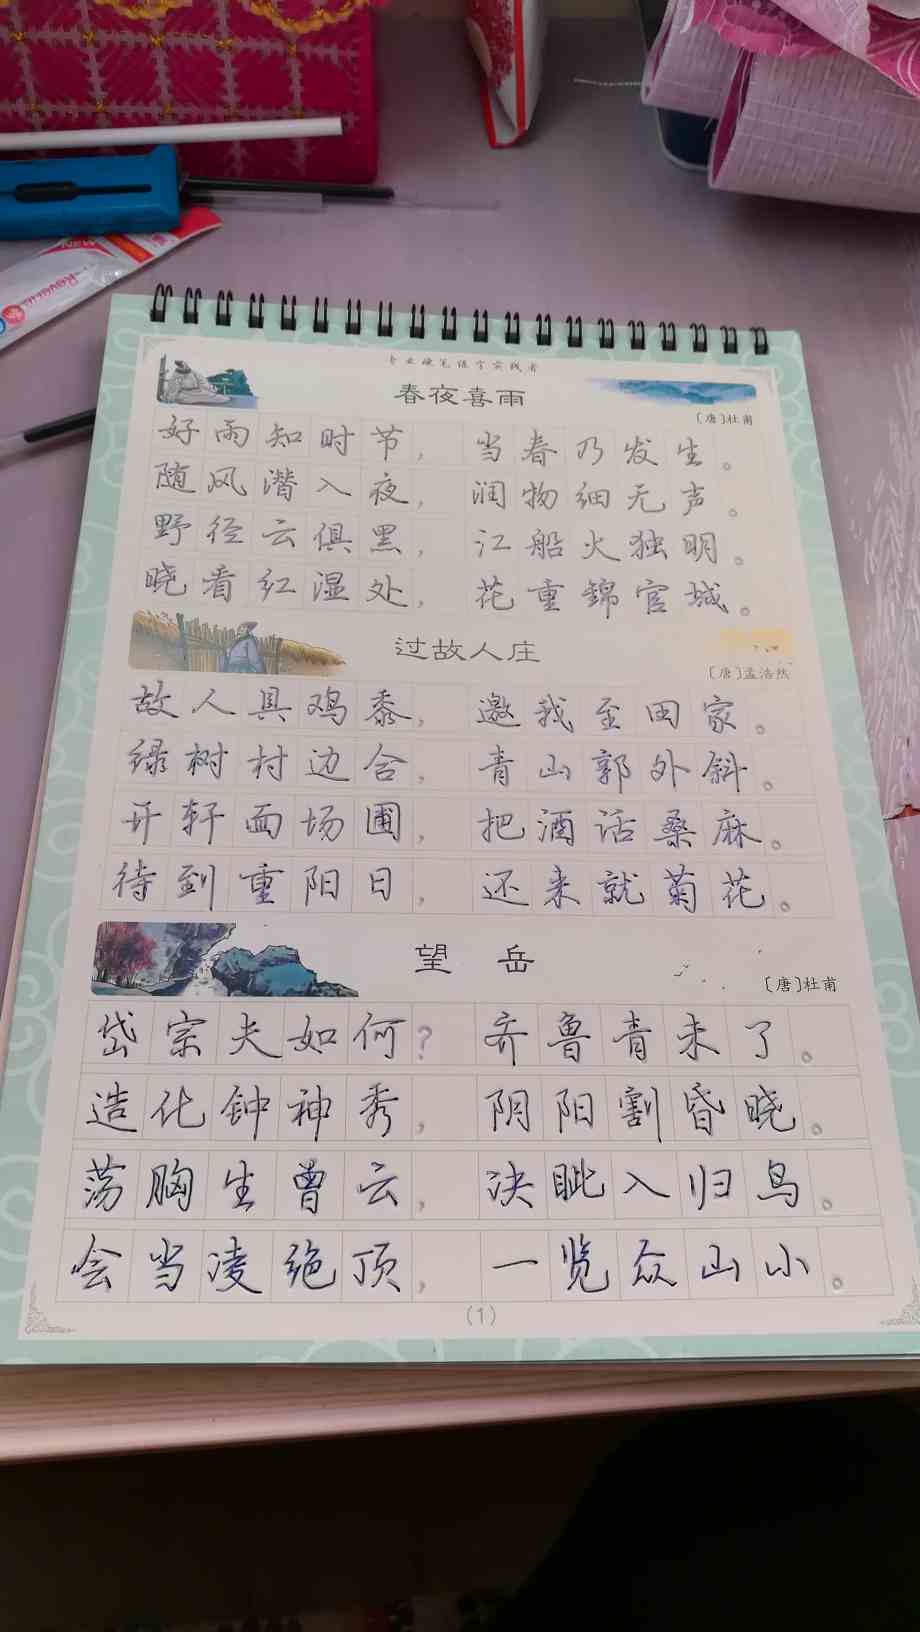 专业硬笔练字实践者
春夜喜雨
〔唐〕杜甫
好雨知时节，当春乃发生。
随风潜入夜，润物细无声。
野径云俱黑，江船火独明。
晓看红湿处，花重錦官城。
过故人庄
〔唐〕孟浩然
故人具鸡黍，邀我至田家。
绿树村边合，青山郭外斜。
开轩面场圃，把酒话桑麻。
待到重阳日，还来就菊花。
望岳
〔唐〕杜甫
岱宗夫如何？齐鲁青未了。
造化钟神秀，阴阳割昏晓。
荡胸生曾云，决眦入归鸟。
会当凌绝顶，一览众山小。
(1)